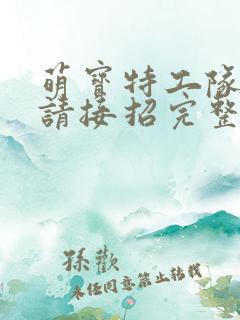 萌寶特工隊
請接招完整
孫歡
未任同意禁止轉載